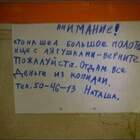 ВНИМАНИЕ!
КТО НАШЕЛ БОЛЬШОЕ ПОЛОТЕ
НЦЕ С ЛЯГУШКАМИ-ВЕРНИТЕ
ПОЖАЛУЙСТА. ОТДАМ ВСЕ
ДЕНЬГИ ИЗ КОПИЛКИ.
ТЕЛ. 50-46-13 НАТАША.